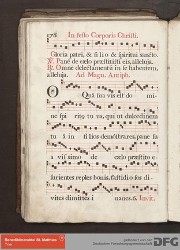 In festo Corporis Christi.
Gloria patri, & filio & spiritui sancto.
V. Panē de cœlo præstitisti eis, alleluja.
R. Omne delectamentū in se habentem,
alleluja. Ad Magn. Antiph.
O Quā suavis est do mi-
ne spi ritus tu us, qui ut dulcedinem
tu ā in filios demōstrares, pane sua
vissimo de cœlo præstito e-
surientes reples bonis, fastidiosos di-
vites dimittēs i nanes.
DFG